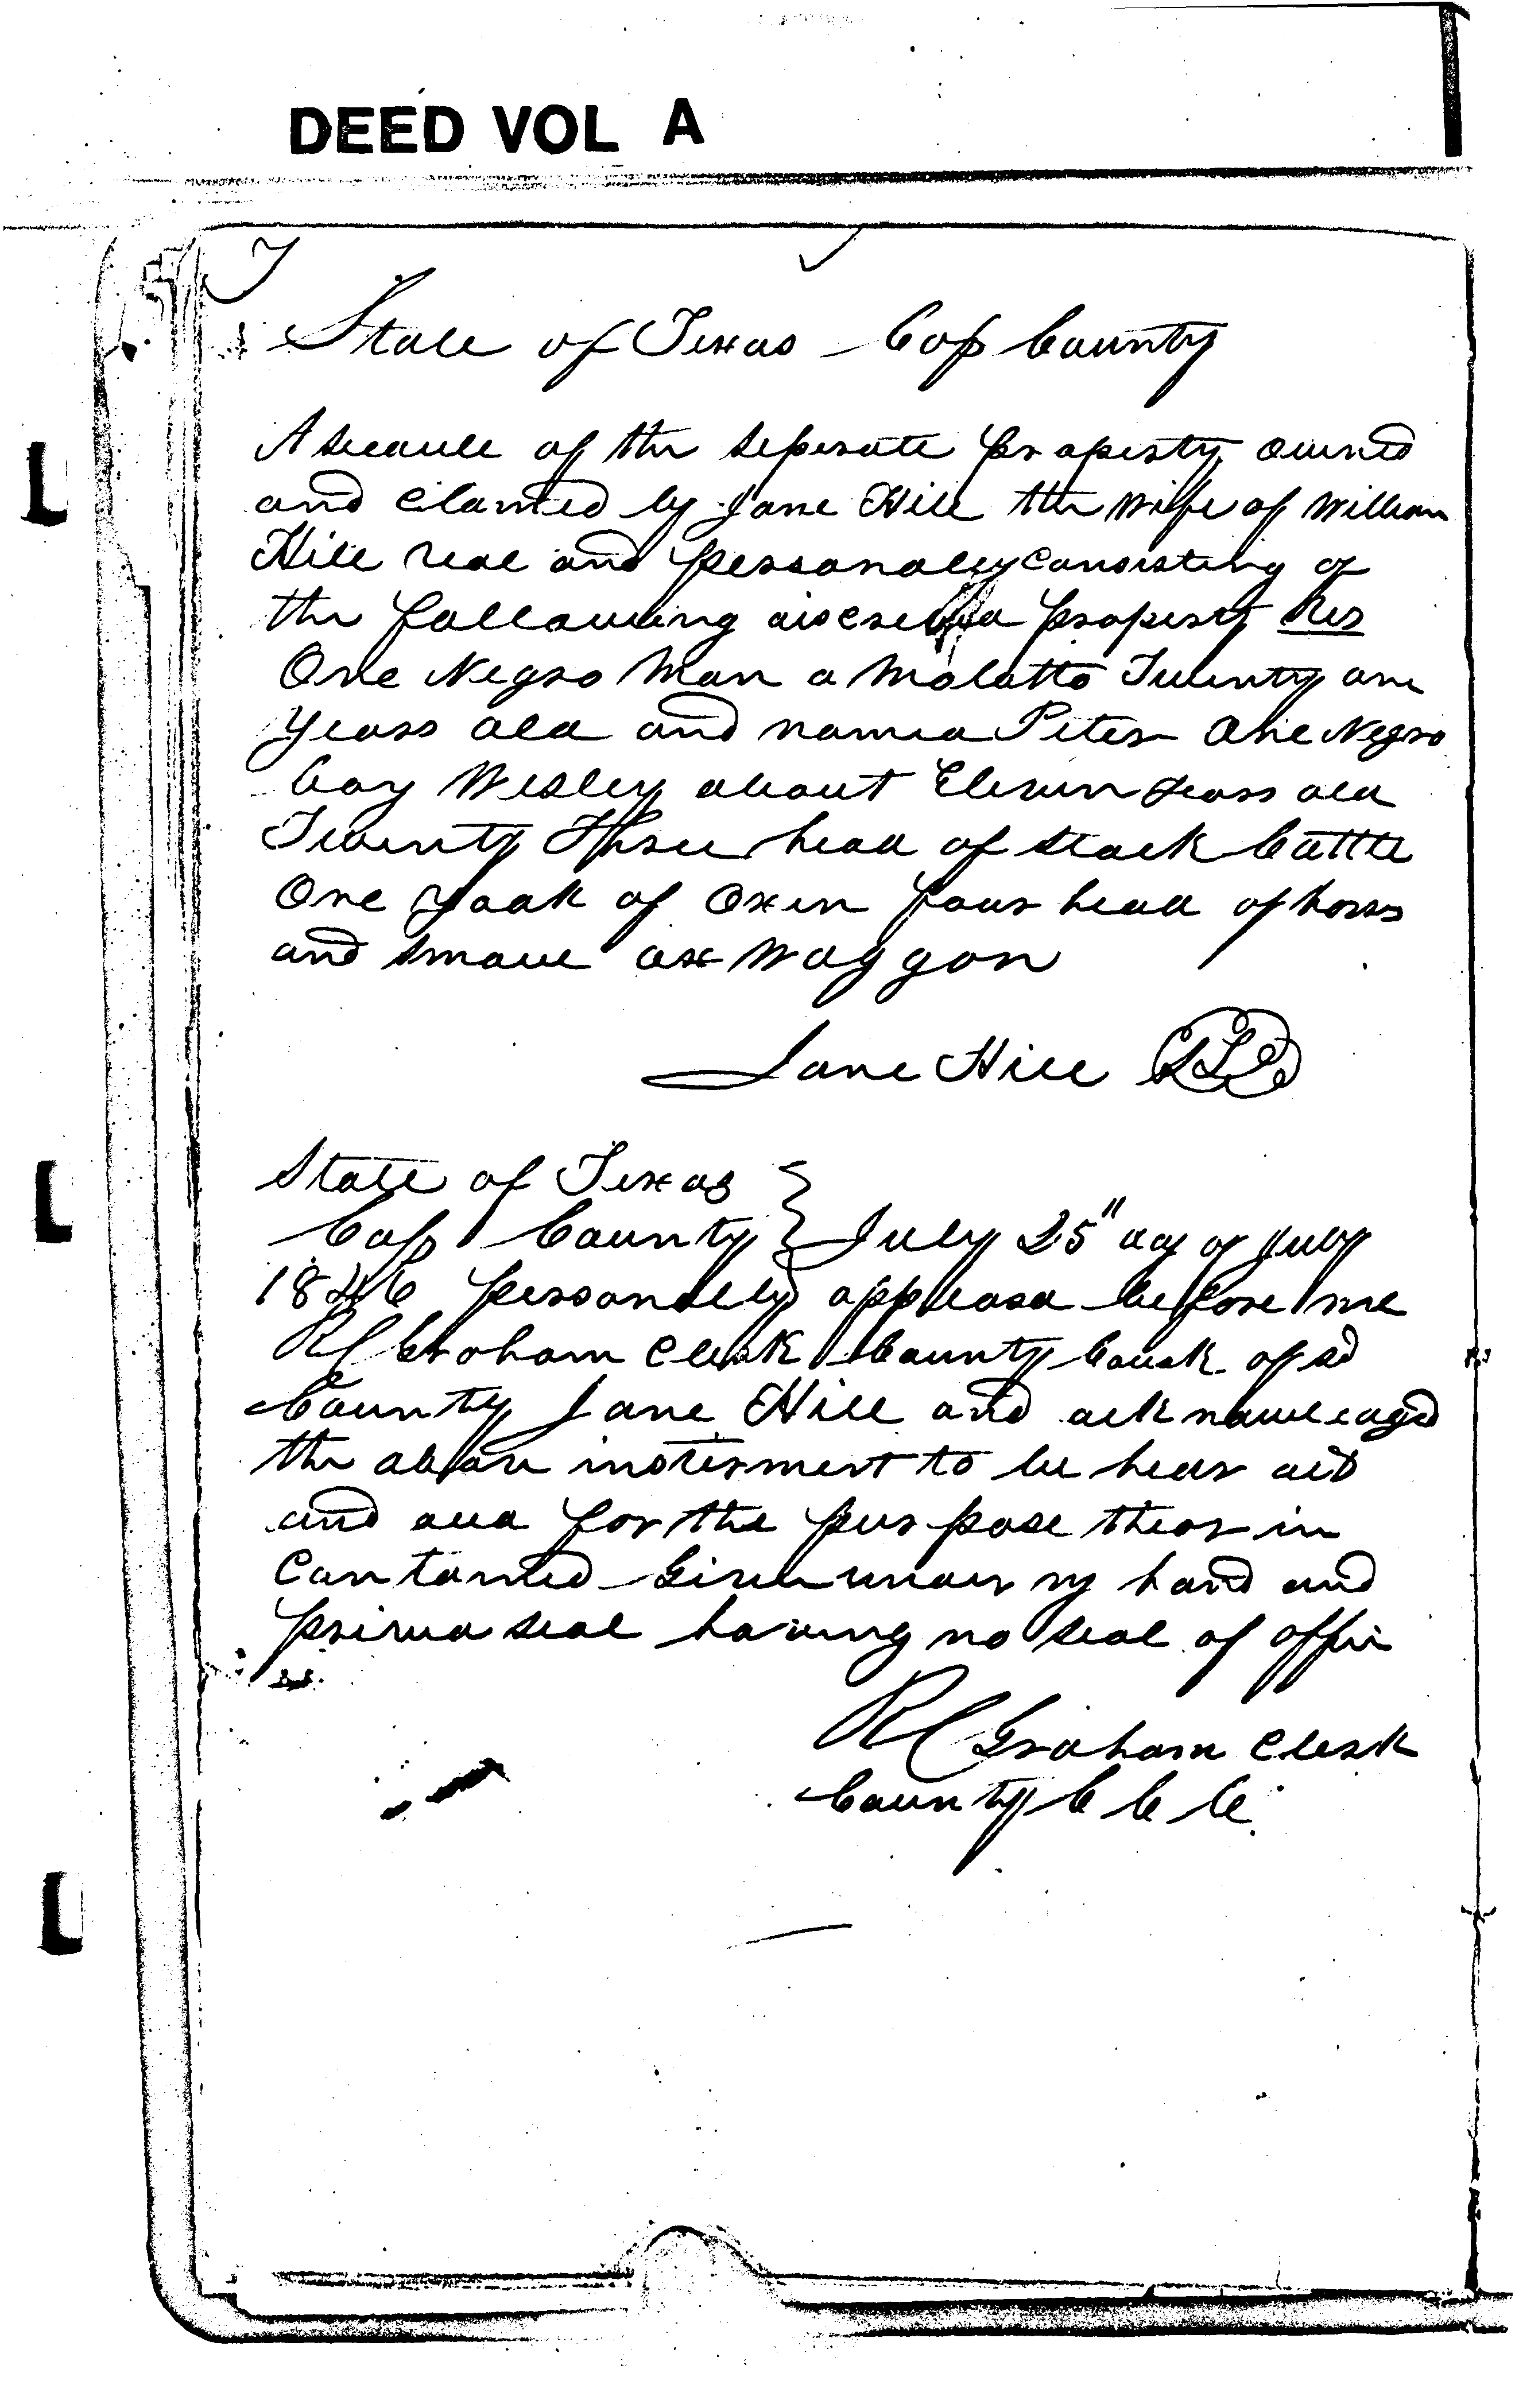 DEED VOL A
State of Texas Cass County
A Sceaule of the seperate property owned
and clamed by Jane Hill the wife of William
Hill real and personaley consisting of
the following discribed property
One Negro Man a Molatto Twenty one
years old and named Peter One Negro
boy Wesley about Eleven years old
Twenty Three head of stock Cattle
One yoak of Oxen four head of horses
and small ox Waggon
Jane Hill
State of Texas
Cass County } July 25" day of July
1846 personally appleard before me
R C Graham Clerk County Court of sd
County Jane Hill and acknowledged
the above insterment to be hear act
and deed for the purpose thear in
Contained Given under my hand and
privea seal having no seal of offic
R C Graham Clerk
County C C C